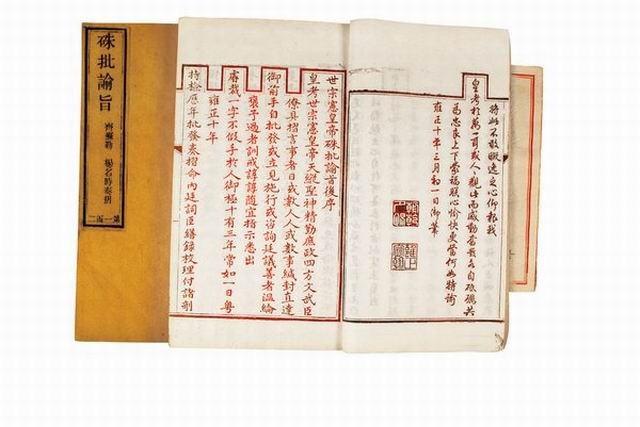 硃批諭旨
齊蘇勒 楊名時奏摺
第一函二
將此不敢暇逸之心仰報我
皇考於萬一耳或人人觀此而感動奮發各自砥礪共
為忠良上下蒙福朕心愉快更當何如特諭
雍正十年三月初一日御筆
世宗憲皇帝硃批諭旨後序
皇考世宗憲皇帝天縱聖神精勤庶政四方文武臣
僚具摺言事者日或數人人或數事緘封直達
御前手自批發或立見施行或咨詢廷議善者溫綸
褒予過者訓戒諄諄隨宜指示悉出
睿裁一字不假手於人御極十有三年常如一日粵
雍正十年
特檢歷年批發奏摺命內廷詞臣繕錄校理付諸剞